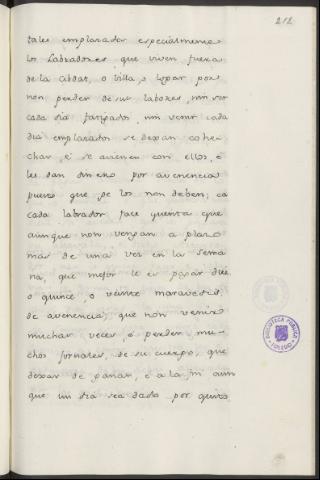 212
tales emplazados especialmente
los Labradores, que viven fuera
de la cibdat, o Villa, o lugar por
non perder de sus labores, nin ser
cada dia fatigados, nin venir cada
dia emplazados se dexan cohe-
char, é se avienen con ellos, é
les dan dinero por avenencia
puesto que se los non deben; ca
cada labrador face quenta que
aunque non vengan a plazo
mas de una vez en la sema
na, que mejor le es pagar diez
o quince, o veinte maravedis
de avenencia, que non venir
muchas veces, é perder mu-
chos jornales, de su cuerpo, que
dexar de ganar, é a la fin aun
que un dia sea dado por quito
BIBLIOTECA PUBLICA
TOLEDO